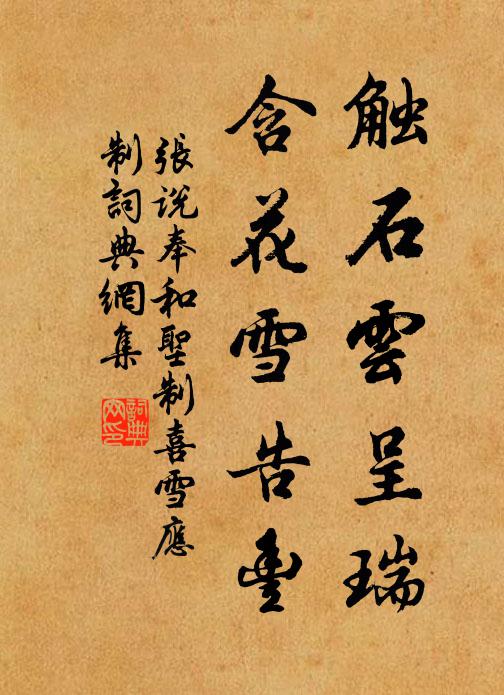 触石雲呈瑞
含花雪告豐
張说奉和聖制喜雪應
制詞典網集
詞典
网印